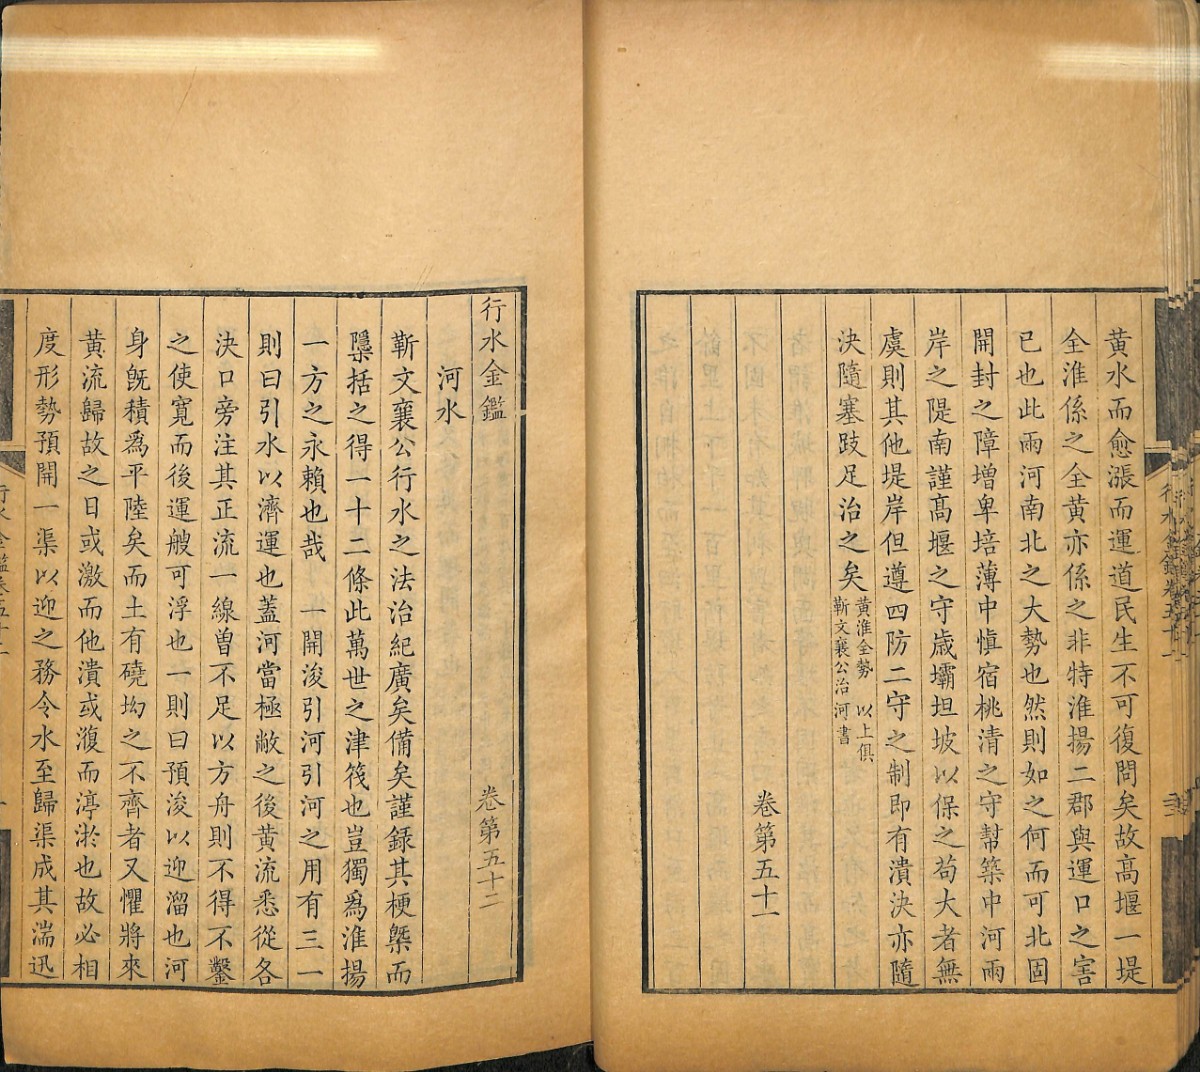 黃水而愈漲而運道民生不可復問矣故高堰一堤
全淮係之全黃亦係之非特淮揚二郡與運口之害
已也此兩河南北之大勢也然則如之何而可北固
開封之障增卑培薄中愼宿桃清之守幇築中河兩
岸之隄南謹高堰之守歲壩坦坡以保之苟大者無
虞則其他堤岸但遵四防二守之制即有潰決亦隨
決隨塞跂足治之矣
黃淮全勢 以上俱
靳文襄公治河書
卷第五十一
行水金鑑 卷第五十二
河水
靳文襄公行水之法治紀廣矣備矣謹録其梗槩而
隱括之得一十二條此萬世之津筏也豈獨爲淮揚
一方之永賴也哉 一開浚引河引河之用有三一
則曰引水以濟運也蓋河當極敝之後黃流悉從各
決口旁注其正流一線曾不足以方舟則不得不鑿
之使寬而後運艘可浮也一則曰預浚以迎溜也河
身旣積爲平陸矣而土有磽㘭之不齊者又懼將來
黃流歸故之日或激而他潰或澓而渟淤也故必相
度形勢預開一渠以迎之務令水至歸渠成其湍迅